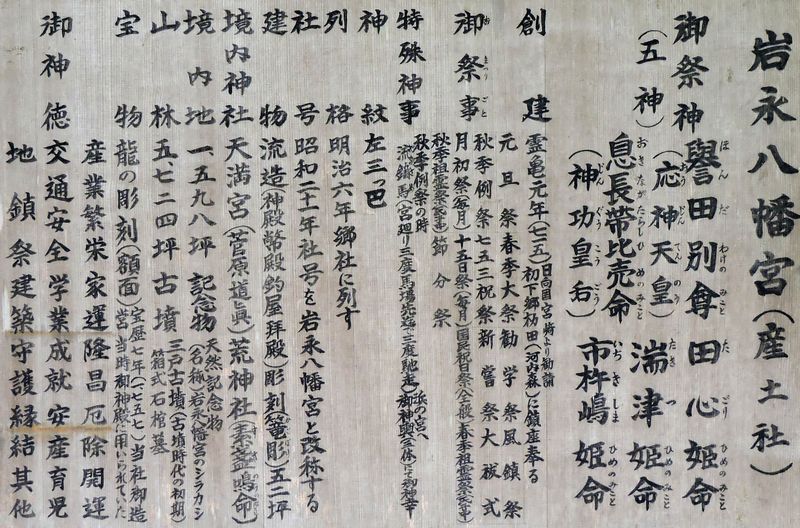 岩永八幡宮(産土社)
御祭神 譽田別尊 田心姫命
(五神) (応神天皇) 湍津姫命
息長帯比売命 市杵嶋姫命
(神功皇后)
創建 霊亀元年(七一五)日向国宮崎より勧請
初下郷枋田(河内森)に鎮座奉る
御祭事 元旦祭春季大祭勧学祭風鎮祭
秋季例祭七五三祝祭新嘗祭大祓式
月初祭(毎月)十五日祭(毎月)国民祝日祭(全般)春季祖霊祭
秋季祖霊祭節分祭
特殊神事 秋季例祭の時
流鏑馬(宮廻り三度馬場三度馳走)浜の宮へ御神輿(三体)にて御神幸
神紋 左三つ巴
列格 明治六年郷社に列す
社号 昭和二十一年社号を岩永八幡宮と改称する
建物 流造(神殿幣殿釣屋拝殿)彫刻(篭彫)五二坪
境内神社 天満宮(菅原道眞)荒神社(素盞嗚命)
境内地 一、五九八坪 記念物 天然記念物
(名称岩永八幡宮のシラカシ
山林 五、七二四坪 古墳 三戸古墳(古墳時代の初期)
箱式石棺墓
宝物 龍の彫刻(額面)宝歴七年(一七五七)当社御造
営当時御神殿に用いられていた
御神徳 産業繁栄家運隆昌厄除開運
交通安全学業成就安産育児
地鎮祭建築守護縁結其他